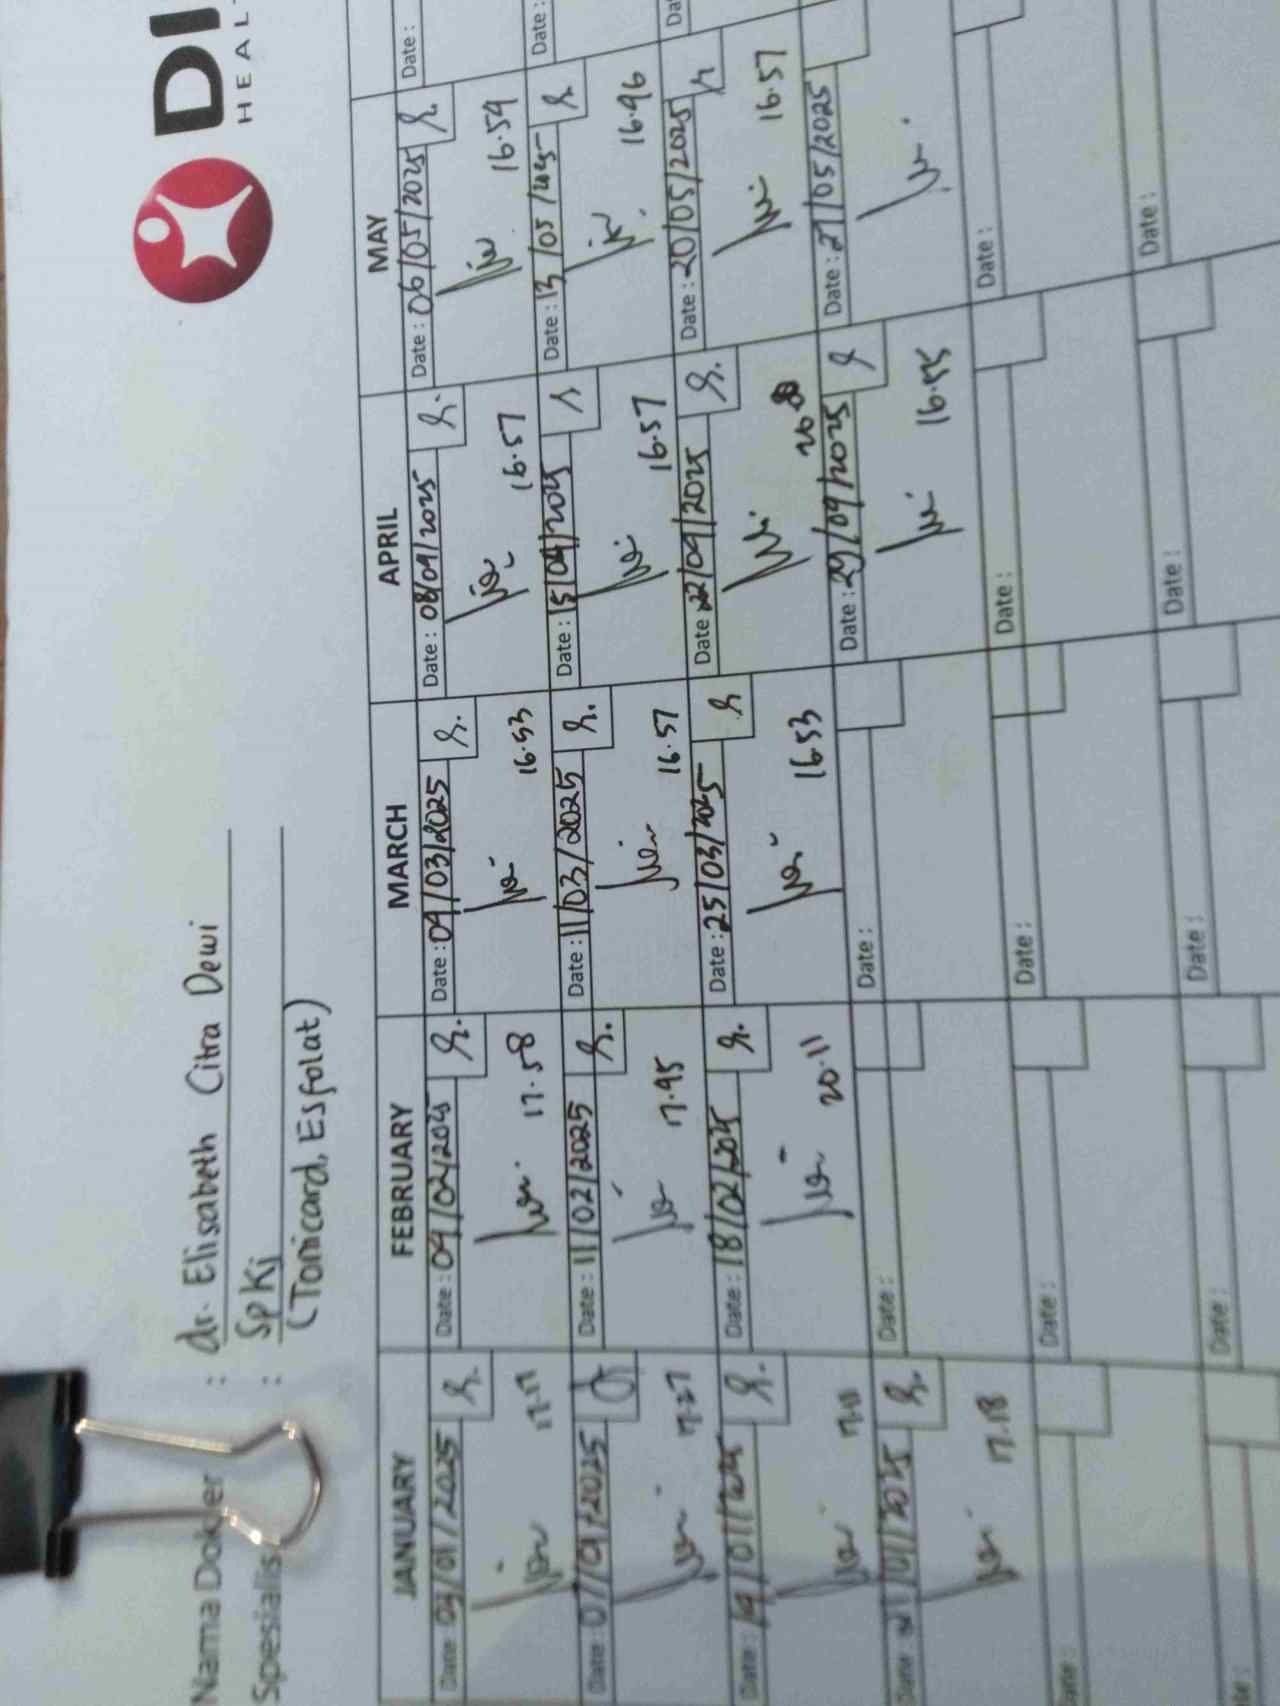 DI
HEAL
Nama Dokter : dr. Elisabeth Citra Dewi
Spesialis : SpKj
(Tonicard, Esfolat)
JANUARY FEBRUARY MARCH APRIL MAY
Date: 03/01/2025 Date: 04/02/2025 Date: 04/03/2025 Date: 08/04/2025 Date: 06/05/2025 Date:
17.17 17.58 16.53 16.57 16.59
Date: 07/01/2025 Date: 11/02/2025 Date: 11/03/2025 Date: 15/04/2025 Date: 13/05/2025 Date:
17.27 17.45 16.57 16.57 16.46
Date: 14/01/2025 Date: 18/02/2025 Date: 25/03/2025 Date: 22/04/2025 Date: 20/05/2025 Da
17.11 20.11 16.53 16.57
Date: 21/01/2025 Date: Date: Date: 29/04/2025 Date: 27/05/2025
17.18 16.55
Date: Date: Date: Date: Date:
Date: Date: Date: Date: Date: